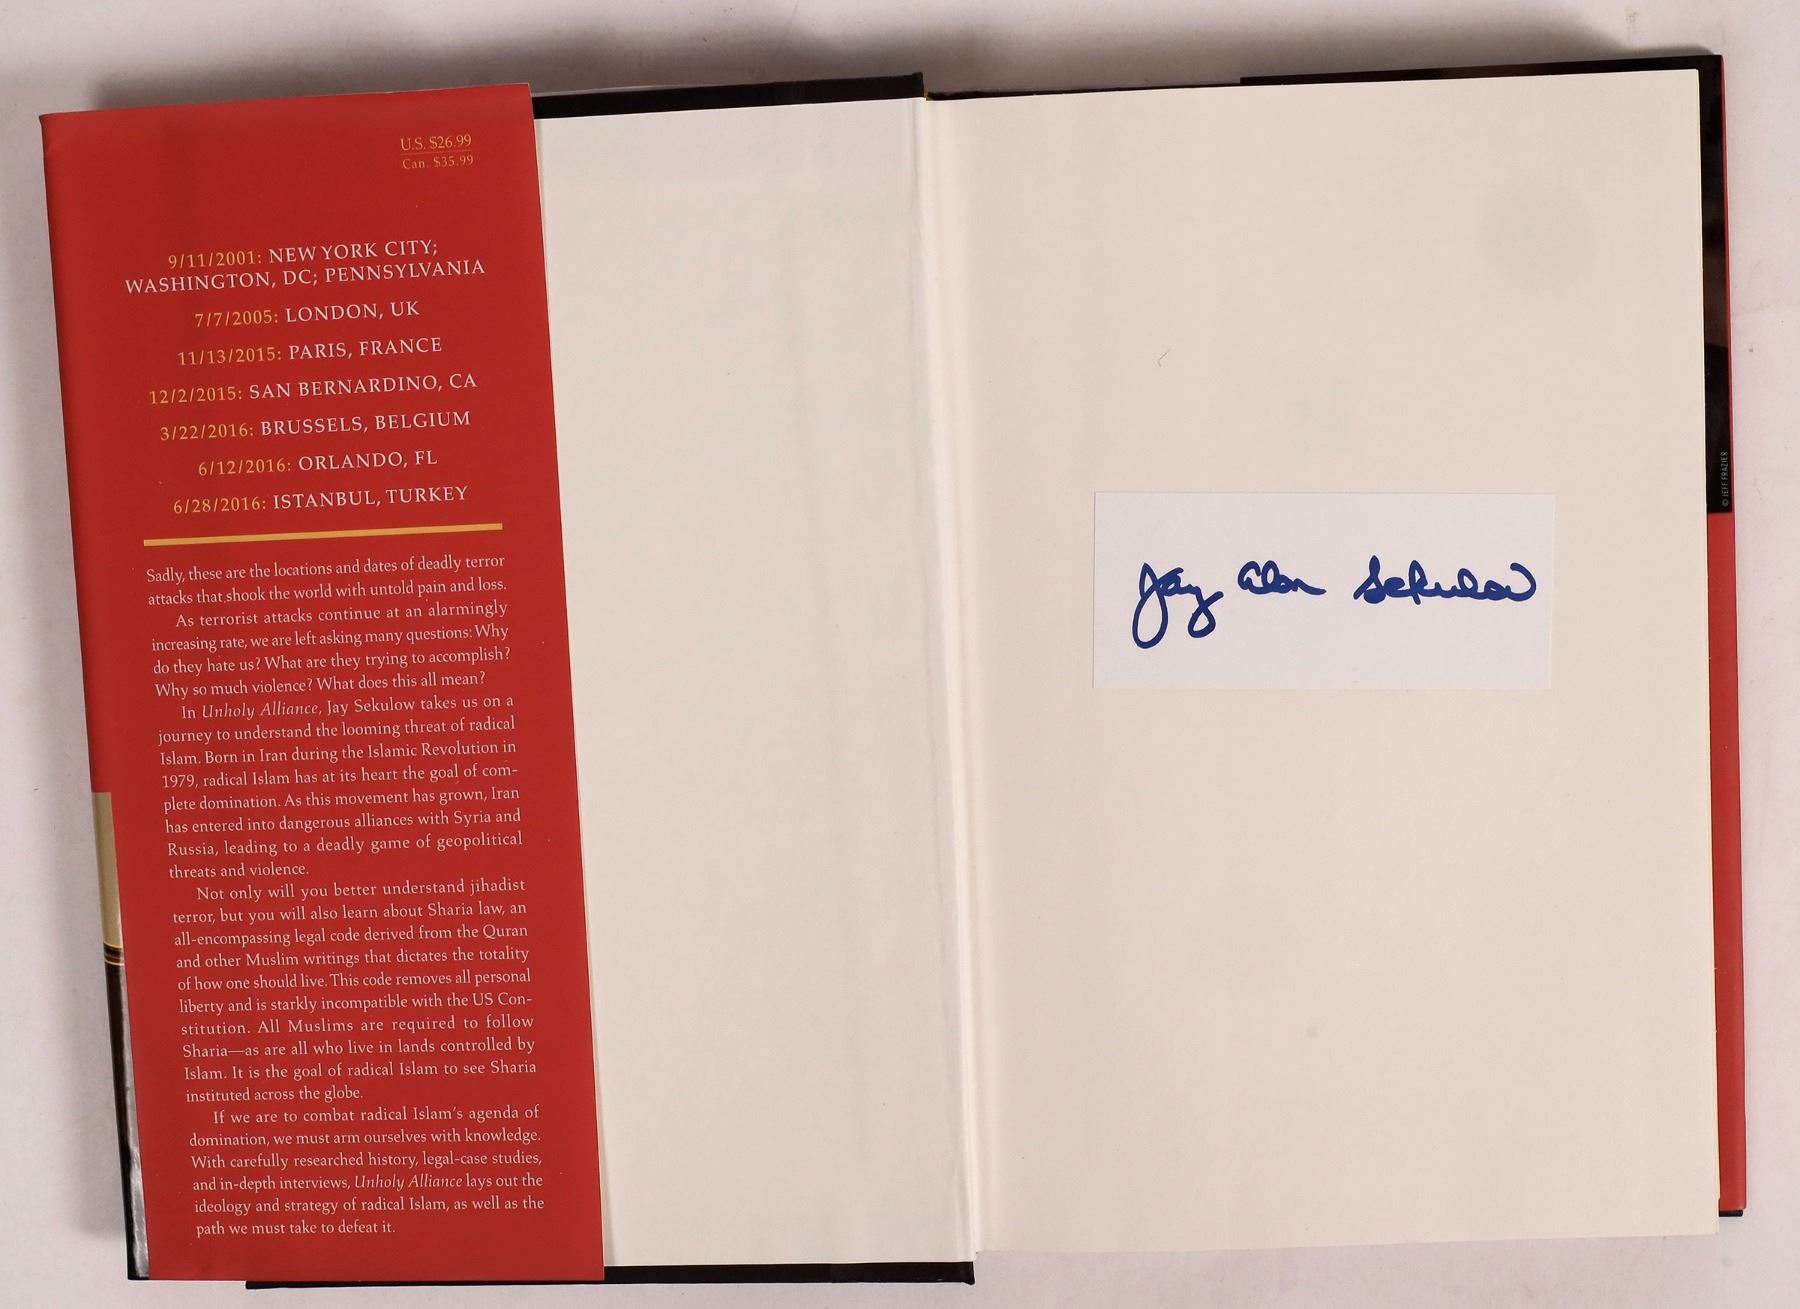 U.S. $26.99
Can. $35.99
9/11/2001: NEW YORK CITY;
WASHINGTON, DC; PENNSYLVANIA
7/7/2005: LONDON, UK
11/13/2015: PARIS, FRANCE
12/2/2015: SAN BERNARDINO, CA
3/22/2016: BRUSSELS, BELGIUM
6/12/2016: ORLANDO, FL
6/28/2016: ISTANBUL, TURKEY
Sadly, these are the locations and dates of deadly terror
attacks that shook the world with untold pain and loss.
As terrorist attacks continue at an alarmingly
increasing rate, we are left asking many questions: Why
do they hate us? What are they trying to accomplish?
Why so much violence? What does this all mean?
In Unholy Alliance, Jay Sekulow takes us on a
journey to understand the looming threat of radical
Islam. Born in Iran during the Islamic Revolution in
1979, radical Islam has at its heart the goal of com-
plete domination. As this movement has grown, Iran
has entered into dangerous alliances with Syria and
Russia, leading to a deadly game of geopolitical
threats and violence.
Not only will you better understand jihadist
terror, but you will also learn about Sharia law, an
all-encompassing legal code derived from the Quran
and other Muslim writings that dictates the totality
of how one should live. This code removes all personal
liberty and is starkly incompatible with the US Con-
stitution. All Muslims are required to follow
Sharia—as are all who live in lands controlled by
Islam. It is the goal of radical Islam to see Sharia
instituted across the globe.
If we are to combat radical Islam's agenda of
domination, we must arm ourselves with knowledge.
With carefully researched history, legal-case studies,
and in-depth interviews, Unholy Alliance lays out the
ideology and strategy of radical Islam, as well as the
path we must take to defeat it.
Jay Alan Sekulow
© JEFF FRAZIER